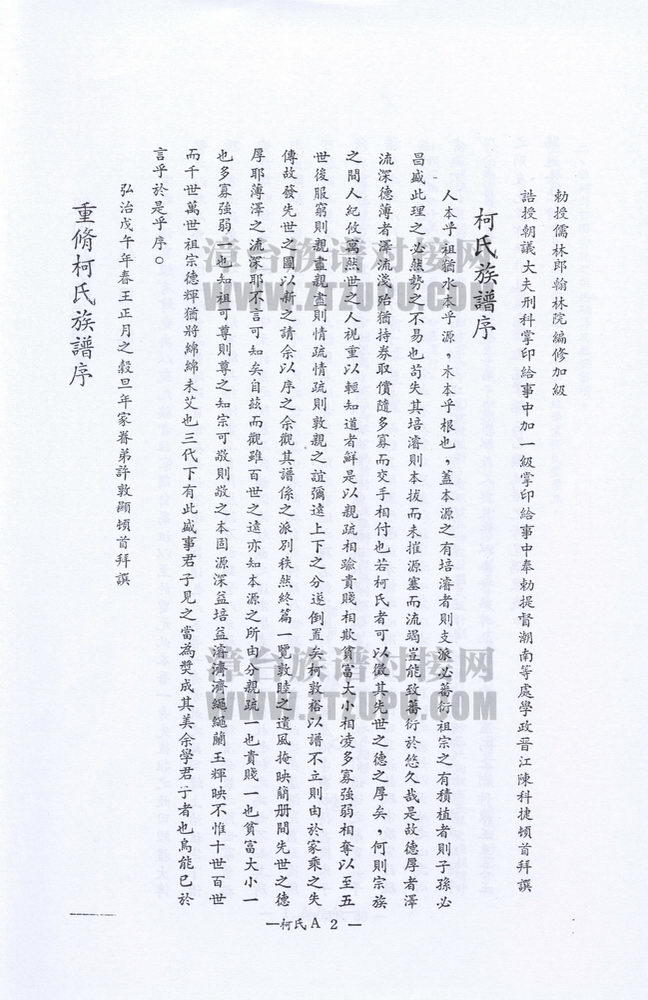 勅授儒林郎翰林院編修加級
誥授朝議大夫刑科掌印給事中加一級掌印給事中奉勅提督湖南等處學政晋江陳科捷頓首拜譔
柯氏族譜序
人本乎祖猶水本乎源，木本乎根也，蓋本源之有培濬者則支派必蕃衍祖宗之有積植者則子孫必
昌盛此理之必然勢之不易也苟失其培濬則本拔而末摧源塞而流竭豈能致蕃衍於悠久哉是故德厚者澤
流深德薄者澤流淺殆猶持券取償隨多寡而交手相付也若柯氏者可以徵其先世之德之厚矣，何則宗族
之間人紀攸寓然世之人視重以輕知道者鮮是以親疏相踰貴賤相欺貧富大小相凌多寡強弱相奪以至五
世後服窮則親盡親盡則情疏情疏則敦親之誼彌遠上下之分遂倒置矣柯敦裕以譜不立則由於家乘之失
傳故發先世之圖以新之請余以序之余觀其譜係之派別秩然終篇一覽敦睦之遺風掩映簡册間先世之德
厚耶薄澤之流深耶不言可知矣自茲而觀雖百世之遠亦知本源之所由分親疏一也貴賤一也貧富大小一
也多寡強弱一也知祖可尊則尊之知宗可敬則敬之本固源深益培益濬濟濟繩繩蘭玉輝映不惟十世百世
而千世萬世祖宗德輝猶將綿綿未艾也三代下有此盛事君子見之當為奬成其美余學君子者也烏能已於
言乎於是乎序。
弘治戊午年春王正月之穀旦年家眷弟許敦顯頓首拜譔
重脩柯氏族譜序
—柯氏A 2 —
漳台族谱对接网
WWW.ZTZUPU.COM
漳台族谱对接网
WWW.ZTZUPU.COM